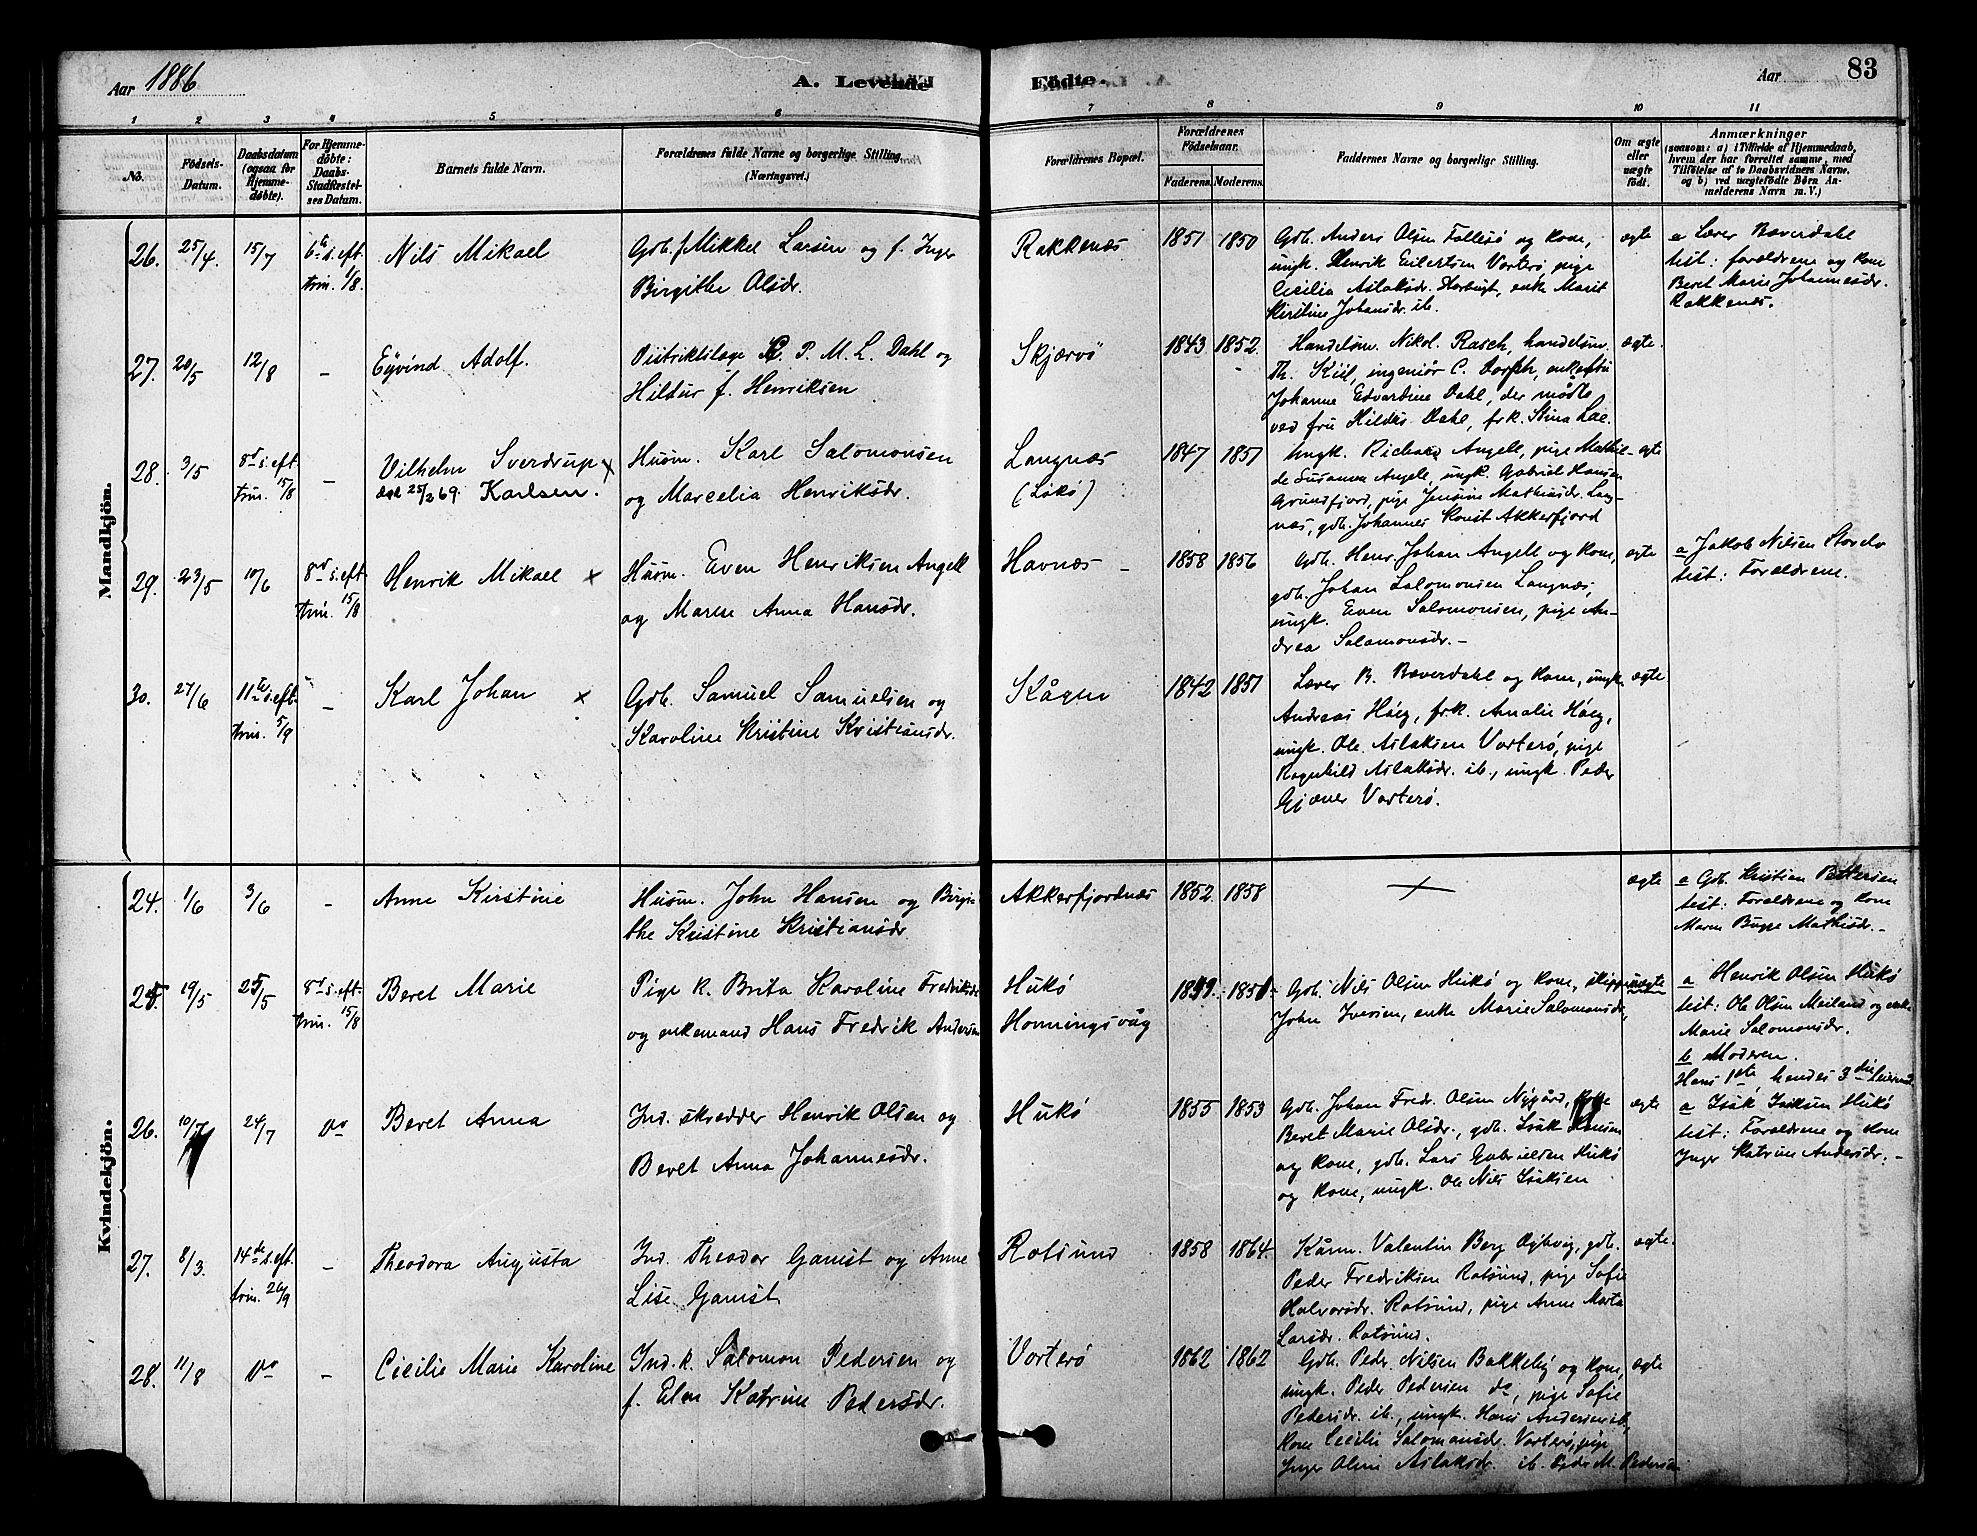 Aar 1886
A. Levende
Födte.
Aar
83
1 2 3 4 5 6 7 8 9 10 11
No.
Födsels-Datum.
Daabsdatum (ogsaa for Hjemmedøbte).
For Hjemmedøbte: Daabs-Stadfæstelses Datum.
Barnets fulde Navn.
Forældrenes fulde Navne og borgerlige Stilling.
(Næringsvei.)
Forældrenes Bopæl.
Forældrenes Fødselsaar.
Faderens. Moderens.
Faddernes Navne og borgerlige Stilling.
Om ægte eller uægte født.
Anmærkninger
(saasom: a) i Tilfælde af Hjemmedaab, hvem der har forrettet samme, med Tilføielse af to Daabsvidners Navne, og b) ved uægtefödte Börn Anmelderens Navn m. V.)
Mandkjön.
26. 25/4. 15/7 6te s. eft. trin. 1/8.
Nils Mikael
Gdb. f. Mikkel Larsen og f. Inger
Birgithe Olsdr.
Rakkenæs
1851 1850
Gdb. Anders Olsen Follesö og kone,
ungk. Henrik Eilertsen Vorterö, pige
Cecilia Aslaksdr. enke Marit
Kirstine Johansdr. ib.
ægte
a Lærer Bæverdahl
test: forældrene og kone
Beret Marie Johannesdr.
Rakkenæs.
27. 20/5 12/8 -
Eÿvind Adolf.
Distriktslæge P. M. L. Dahl og
Hildur f. Henriksen
Skjærvö
1843 1852.
Handelsm. Nikol. Rasch, handelsm.
Th. Kiil, ingeniör C. enkefru
Johanne Edvardine Dahl, der mödte
ved fru Hildur Dahl, frk. Stina Lae.
ægte.
28. 3/5 8de s. eft. trin. 15/8 -
Vilhelm Sverdrup x
25/2 69. Karlsen.
Husm. Karl Salomonsen
og Marcelia Henriksdr.
Langnæs
(Lökö)
1847 1851
Ungk. Richard Angell, pige Mathil-
de Susanna Angell, ungk. Gabriel Hansen
Grundfjord, pige Jensine Mathisdr. Lang-
næs, gdb. Johannes Akkerfjord
ægte
29. 23/5 10/6 8de s. eft. trin. 15/8
Henrik Mikael x
Husm. Even Henriksen Angell
og Marese Anna Hansdr.
Havnæs -
1858 1856
Gdb. Henr. Johan Angell og kone,
gdb. Johan Salomonsen Langnæs,
ungk. Even Salomonsen, pige An-
drea Salamonsdr. -
ægte
a Jakob Nilsen
test: Forældrene.
30. 27/6 11te s. eft. trin. 5/9 -
Karl Johan x
Gdb. Samuel Samuelsen og
Karoline Kristine Kristiansdr.
Kågen
1842 1851
Lærer B. Bæverdahl og kone, ungk.
Andreas Höeg, frk. Amalie Höeg,
ungk. Ole Aslaksen Vorterö, pige
Ragnhild Aslaksdr. ib., ungk. Peder
Gjæver Vorterö.
ægte
Kvindekjön.
24. 1/6 3/6 -
Anne Kirstine
Husm. John Hansen og Birgi-
the Kristine Kristiansdr
Akkerfjordnæs
1852. 1858
ægte
a Gdb. Kristian Pettersen
test: Forældrene og kone
Maren Mathisdr. -
25. 19/5 25/5 8de s. eft. trin. 15/8
Beret Marie
Pige k. Brita Karoline Fredriksdr
og enkemand Hans Fredrik Andersen
Hukö
Honningsvåg
1851
Gdb. Nils Olsen Hukö og kone, skipper
John Iversen, enke Marie Salomonsdr.
uægte
a Henrik Olsen Hukö
test: Ole Olsen Meiland og enke
Marie Salomonsdr.
b Moderen.
Hans 1ste, hendes 3die leierm.
26. 10/7 24/7 do
Beret Anna
Ind. skrædder Henrik Olsen og
Beret Anna Johannesdr.
Hukö
1855 1853
Gdb. Johan Fred. Olsen Nÿgård,
Beret Marie Olsdr., gdb. Isak
og kone, gdb. Lars Gabrielsen Hukö
og kone, ungk. Ole Nils Isaksen
ægte
a Isak Isaksen Hukö
test: Forældrene og kone
Inger Katrine Andersdr. -
27. 8/3. 14de s. eft. trin. 26/9 -
Theodora Augusta
Ind. Theodor Gamst og Anne
Lise Gamst
Rotsund
1858 1864.
Kårm. Valentin Berg gdb.
Peder Fredriksen Rotsund, pige Sofie
Halvorsdr. Rotsund, pige Anne Marta
Larsdr. Rotsund.
ægte.
28. 11/8 do -
Cicilie Marie Karoline
Ind. k. Salomon Pedersen og
f. Elen Katrine Pedersdr.
Vorterö
1862 1862
Gdb. Peder Nilsen Bakkebÿ og kone,
ungk. Peder Pedersen do, pige Sofie
Pedersdr. ib., ungk. Hans Andersen ib.,
kone Cecilie Salomonsdr. Vorterö, pige
Inger Oline Aslaksdr. ib. Peder M. Pedersen
ægte